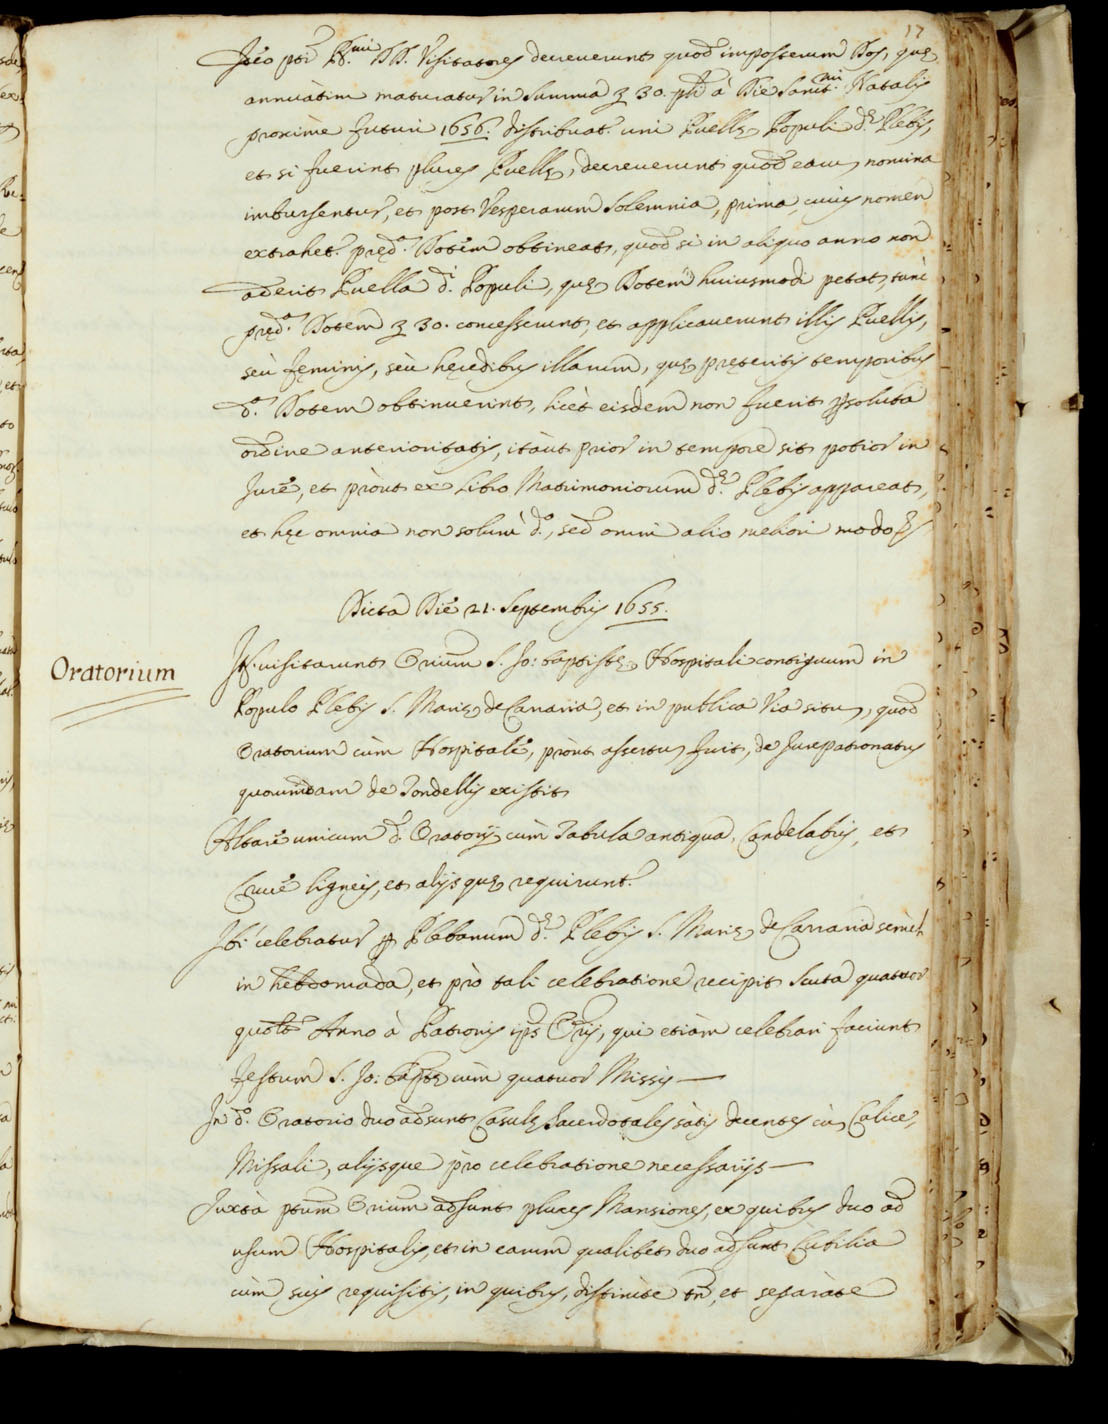 17
Ideo pti Ill.mi DD. Visitatores decreuerunt quod imposterum Dos, quę
annuatim maturatur in summa ʒ 30. à Die Sanct.mi Natalis
proximè futuri 1656. distribuat. uni Puellę Populi d.ę Plebis,
et si fuerint plures Puellę, decreuerunt quod earum nomina
imbursentur, et post Vesperarum Solemnia, prima, cuius nomen
extrahet. pręd.a Dotem obtineat, quod si in aliquo anno non
aderit Puella d.i Populi, quę Dotem huiusmodi petat, tunc
pręd.a Dotem ʒ 30. concesserunt, et applicauerunt illis Puellis,
seù fęminis, seù hęredibus illarum, quę pręteritis temporibus
d.a Dotem obtinuerint, licèt eisdem non fuerit psoluta
ordine anterioritatis, itàut prior in tempore sit potior in
Jure, et pròut ex Libro Matrimoniorum d.ę Plebis appareat,
et hęc omnia non solum d.o, sed omni alio meliori modo
Dicta Die 21. Septembris 1655.
Oratorium
It. uisitarunt Orium S. Jo: baptistę Hospitali contiguum in
Populo Plebis S. Marię de Carraria, et in publica Via situm, quod
Oratorium cùm Hospitale, pròut assertum fuit, de Jurepatronatus
quorumdam de Tondellis existit
Altare unicum d. Oratorij cùm Tabula antiqua, Candelabris, et
Cruce ligneis, et alijs quę requirunt.
Ibi celebratur p Plebanum d.ę Plebis S. Marię de Carraria semèl
in hebdomada, et prò tali celebratione recipit Scuta quatuor
quolt Anno à Patronis ips Orij, qui etiàm celebrari faciunt
festum S. Jo: baptę cùm quatuor Missis —
In d.o Oratorio duo adsunt Casulę Sacerdotales sàtis decentes cù Calice,
Missali, alijsque prò celebratione necessarijs —
Juxtà ptum Orium adsunt plures Mansiones, ex quibus duo ad
usum Hospitalis, et in earum qualibet duo adsunt Cubilia
cùm suis requisitis, in quibus, distincte tn, et separàte